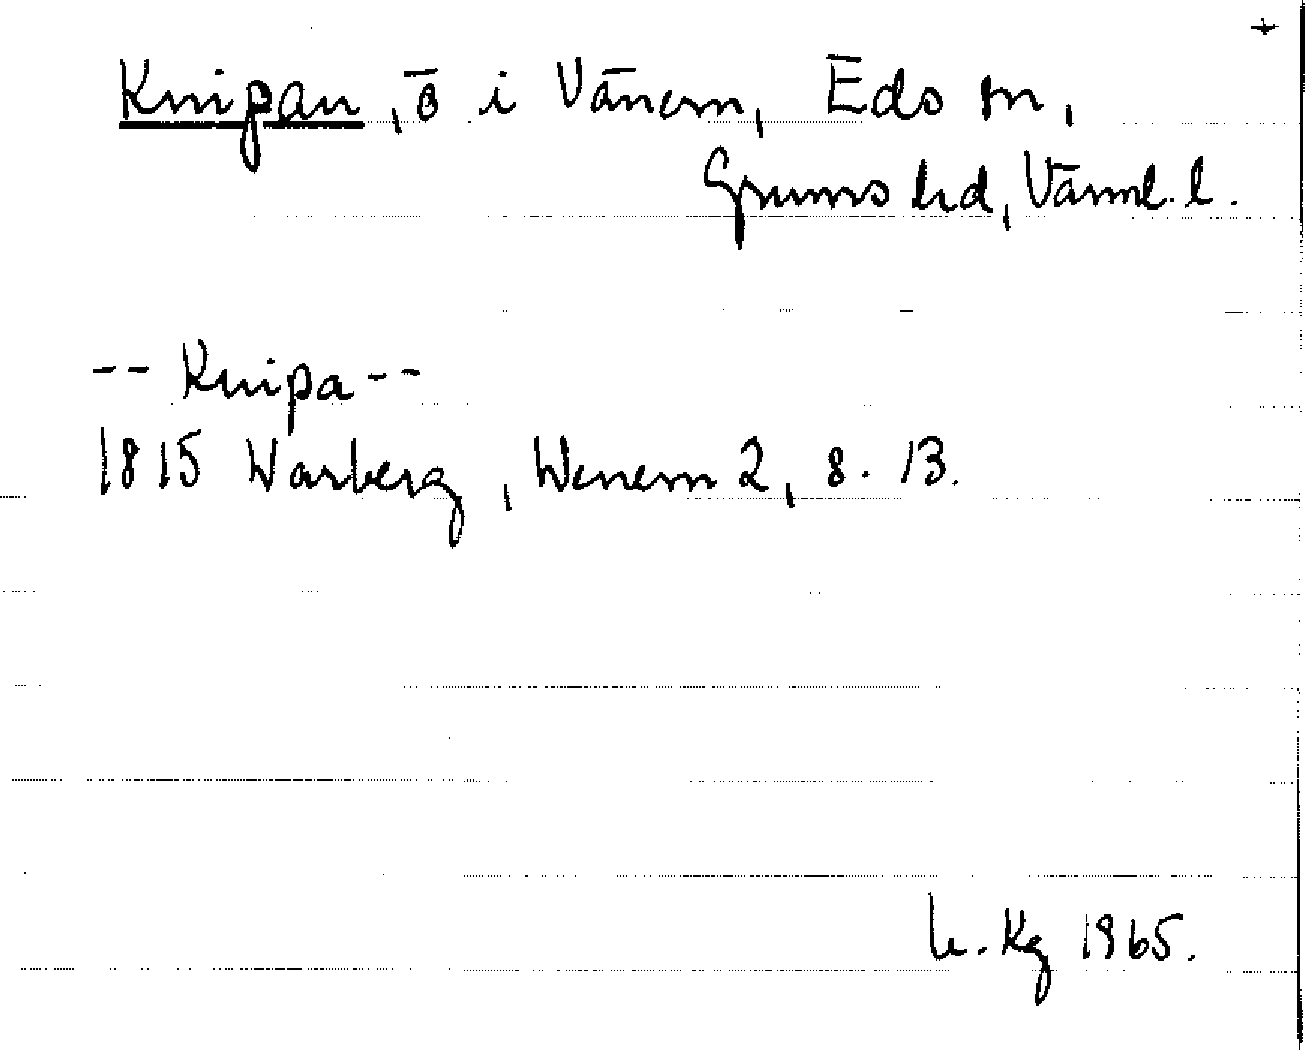 +
Knipan, ö i Vänern, Eds sn,
Grums hd, Värml. l.
-- Knipa --
1815 Warberg, Wenern 2, 8. 13.
h. Kg 1965.